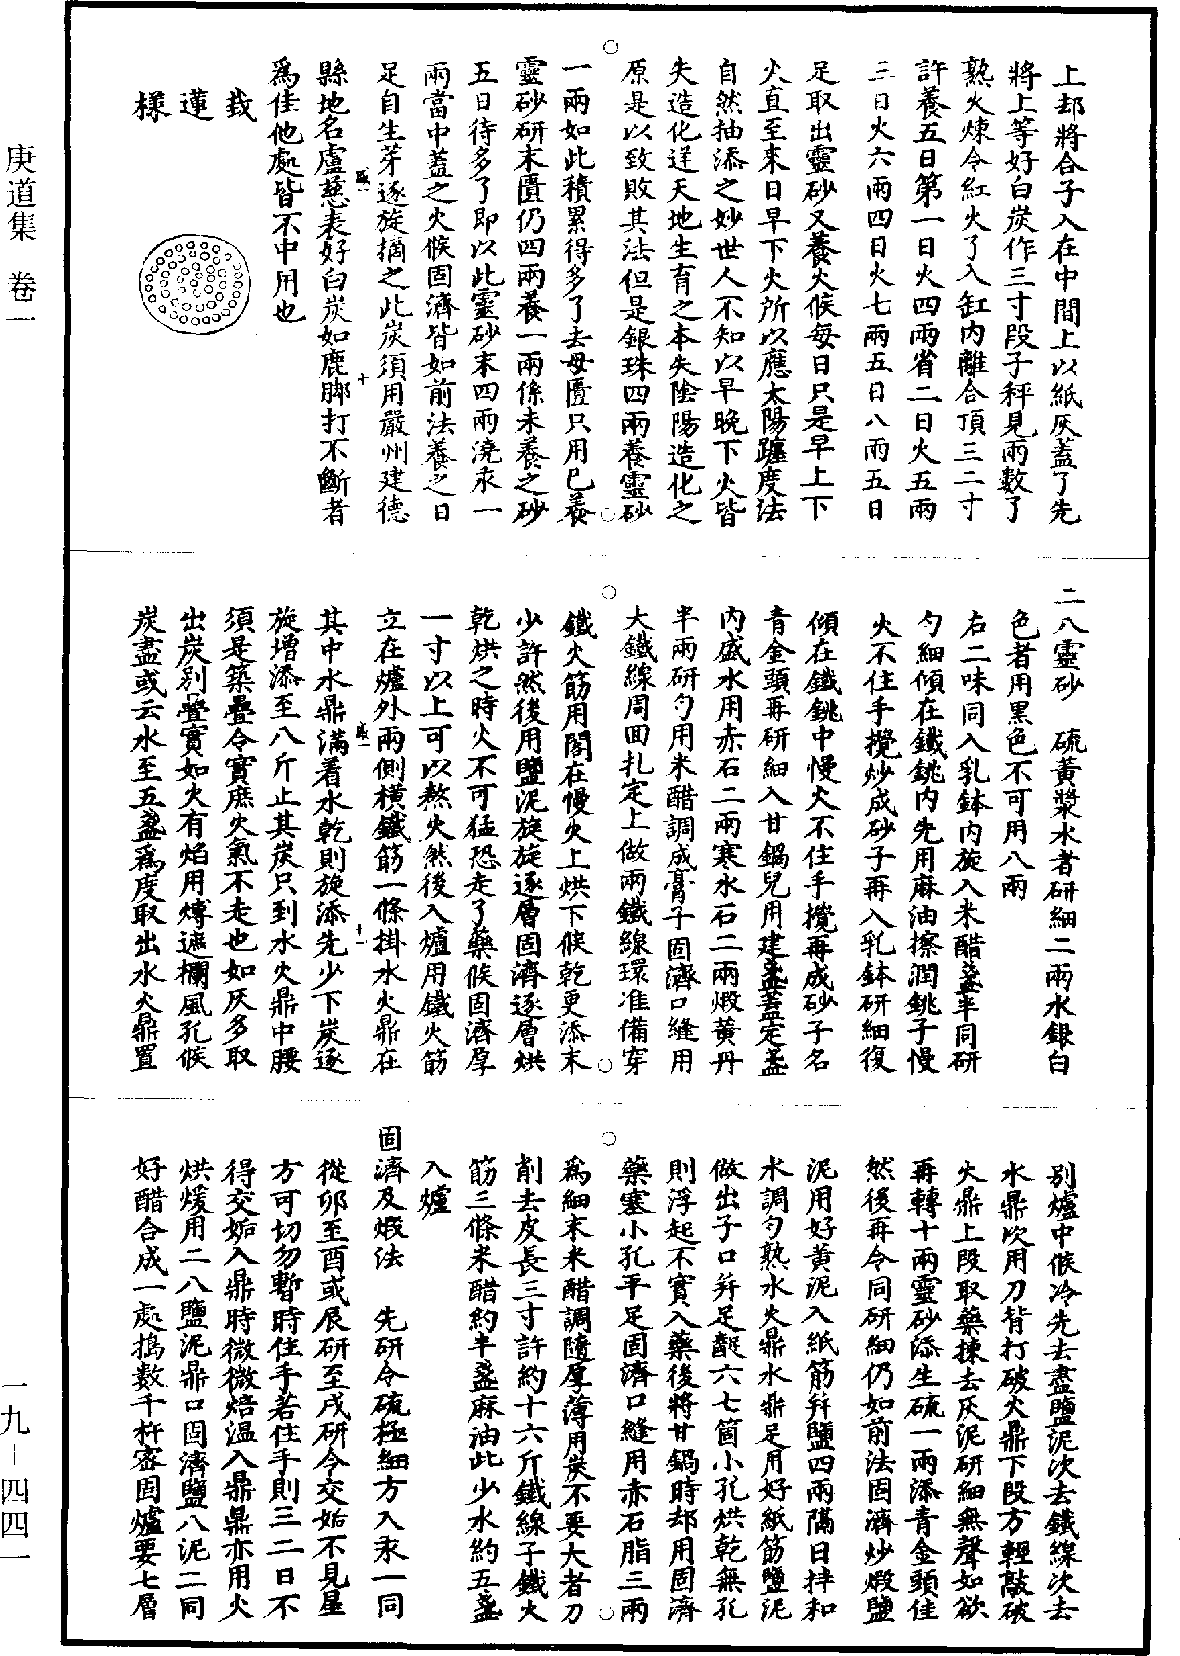 庚道集 卷一
上却將合子入在中間上以紙灰蓋了先
將上等好白炭作三寸段子秤見兩數了
熟火煉令紅火了入缸內離合頂三二寸
許養五日第一日火四兩省二日火五兩
三日火六兩四日火七兩五日八兩五日
足取出靈砂又養火候每日只是早上下
火直至來日早下火所以應太陽躔度法
自然抽添之妙世人不知以早晚下火皆
失造化逆天地生育之本失陰陽造化之
原是以致敗其法但是銀珠四兩養靈砂
一兩如此積累得多了去母匱只用已養
靈砂研末匱仍四兩養一兩係未養之砂
五日待多了即以此靈砂末四兩澆汞一
兩當中蓋之火候固濟皆如前法養之日
足自生芽逐旋摘之此炭須用嚴州建德
縣地名盧慈表好白炭如鹿脚打不斷者
為佳他處皆不中用也
栽
蓮
樣
二八靈砂 硫黃漿水者研細二兩水銀白
色者用黑色不可用八兩
右二味同入乳鉢內旋入米醋盞半同研
勻細傾在鐵銚內先用麻油擦潤銚子慢
火不住手攪炒成砂子再入乳鉢研細復
傾在鐵銚中慢火不住手攪再成砂子名
青金頭再研細入甘鍋兒用建盞蓋定盞
內盛水用赤石二兩寒水石二兩煅黃丹
半兩研勻用米醋調成膏子固濟口縫用
大鐵線周回扎定上做兩鐵線環准備穿
鐵火筯用閣在慢火上烘下候乾更添末
少許然後用鹽泥旋旋逐層固濟逐層烘
乾烘之時火不可猛恐走了藥候固濟厚
一寸以上可以熬火然後入爐用鐵火筯
立在爐外兩側橫鐵筯一條掛水火鼎在
其中水鼎滿着水乾則旋添先少下炭逐
旋增添至八斤止其炭只到水火鼎中腰
須是築疊令實庶火氣不走也如灰多取
出炭別疊實如火有焰用磚遮攔風孔候
炭盡或云水至五盞為度取出水火鼎置
別爐中候冷先去盡鹽泥次去鐵線次去
水鼎次用刀背打破火鼎下段方輕敲破
火鼎上段取藥揀去灰泥研細無聲如欲
再轉十兩靈砂添生硫一兩添青金頭佳
然後再令同研細仍如前法固濟炒煅鹽
泥用好黃泥入紙筋并鹽四兩隔日拌和
水調勻熟水火鼎水鼎足用好紙筋鹽泥
做出子口并足齪六七箇小孔烘乾無孔
則浮起不實入藥後將甘鍋時却用固濟
藥塞小孔平足固濟口縫用赤石脂三兩
為細末米醋調隨厚薄用炭不要大者刀
削去皮長三寸許約十六斤鐵線子鐵火
筯三條米醋約半盞麻油此少水約五盞
入爐
固濟及煅法 先研令硫極細方入汞一同
從卯至酉或辰研至戌研令交姤不見星
方可切勿暫時住手若住手則三二日不
得交姤入鼎時微微焙溫入鼎鼎亦用火
烘煖用二八鹽泥鼎口固濟鹽八泥二同
好醋合成一處搗數千杵密固爐要七層
一九–四四一